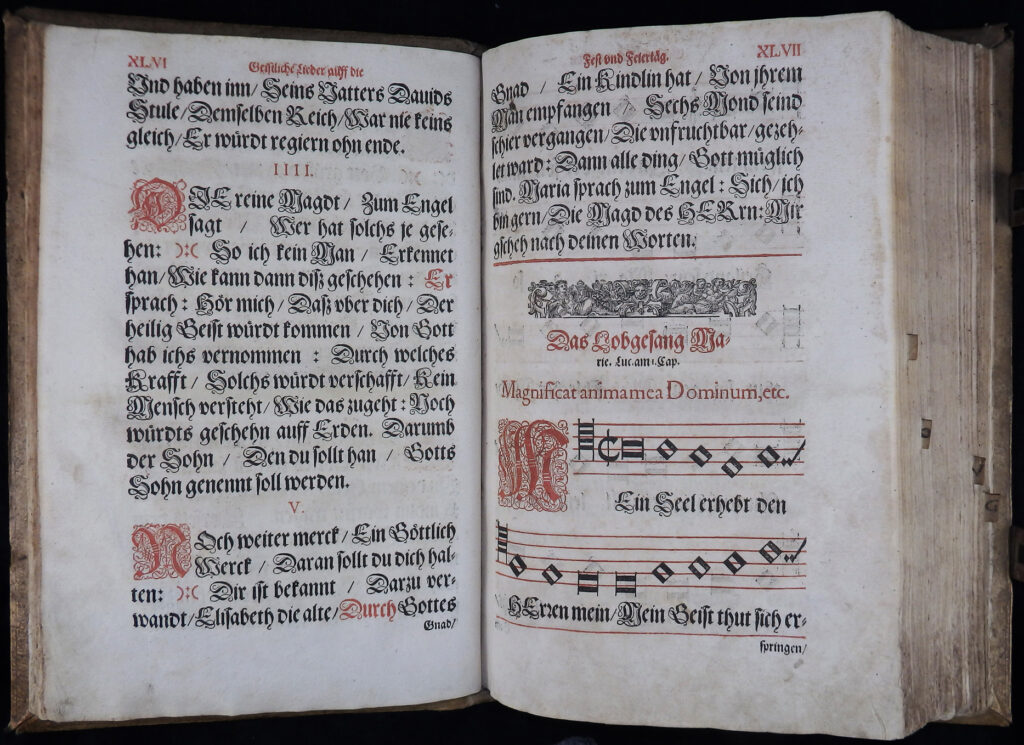 XLVI
Geistliche Lieder auff die
Vnd haben inn/Seins Vatters Dauids
Stule/Demselben Reich/War nie keins
gleich/Er würdt regiern ohn ende.
IIII.
DIE reine Magdt / Zum Engel
sagt / Wer hat solchs je gese-
hen: So ich kein Man / Erkennet
han/Wie kann dann diß geschehen : Er
sprach : Hör mich / Daß vber dich / Der
heilig Geist würdt kommen / Von Gott
hab ichs vernommen : Durch welches
Krafft / Solchs würdt verschafft/Kein
Mensch versteht/Wie das zugeht: Noch
würdts geschehn auff Erden. Darumb
der Sohn / Den du sollt han / Gotts
Sohn genennt soll werden.
V.
NOch weiter merck/Ein Göttlich
Werck / Daran sollt du dich hal-
ten: Dir ist bekannt / Darzu ver-
wandt/Elisabeth die alte/Durch Gottes
Gnad/
Fest vnd Feiertäg.
XLVII
Gnad / Ein Kindlin hat / Von jhrem
Man empfangen / Sechs Mond seind
schier vergangen / Die vnfruchtbar/gezeh-
let ward : Dann alle ding/ Gott müglich
sind. Maria sprach zum Engel : Sich/ich
bin gern/ Die Magd des HERrn: Mir
gscheh nach deinen Worten.
Das Lobgesang Ma-
rie. Luc. am 1. Cap.
Magnificat anima mea Dominum, etc.
MEin Seel erhebt den
HErren mein/Mein Geist thut sich er-
springen/